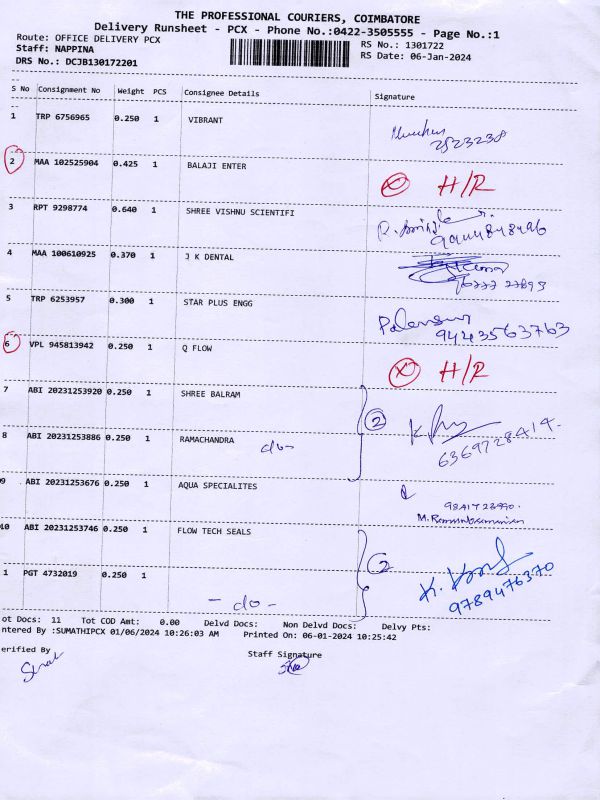 THE PROFESSIONAL COURIERS, COIMBATORE
Delivery Runsheet - PCX - Phone No.:0422-3505555 - Page No.:1
Route: OFFICE DELIVERY PCX RS No.: 1301722
Staff: NAPPINA RS Date: 06-Jan-2024
DRS No.: DCJB130172201
S No Consignment No Weight PCS Consignee Details Signature
1 TRP 6756965 0.250 1 VIBRANT
2523238
2 MAA 102525904 0.425 1 BALAJI ENTER
X H/R
3 RPT 9298774 0.640 1 SHREE VISHNU SCIENTIFI
9944848496
4 MAA 100610925 0.370 1 J K DENTAL
5 TRP 6253957 0.300 1 STAR PLUS ENGG
9443563763
6 VPL 945813942 0.250 1 Q FLOW
X H/R
7 ABI 20231253920 0.250 1 SHREE BALRAM
2
6369728414
8 ABI 20231253886 0.250 1 RAMACHANDRA
-do-
9 ABI 20231253676 0.250 1 AQUA SPECIALITES
10 ABI 20231253746 0.250 1 FLOW TECH SEALS
2
9789476370
1 PGT 4732019 0.250 1
-do-
ot Docs: 11 Tot COD Amt: 0.00 Delvd Docs: Non Delvd Docs: Delvy Pts:
ntered By :SUMATHIPCX 01/06/2024 10:26:03 AM Printed On: 06-01-2024 10:25:42
erified By Staff Signature